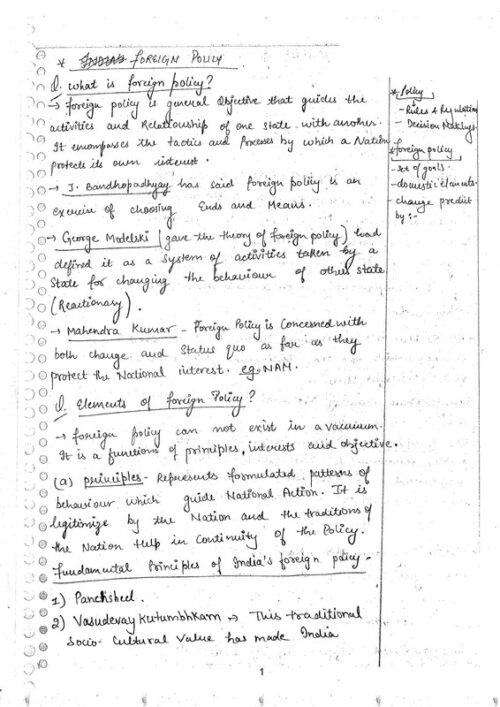 * FOREIGN POLICY
Q. What is foreign policy?
→ foreign policy is general Objective that guides the
activities and Relationship of one state with another.
It encompasses the tactics and Processes by which a Nation
protects its own interest.
→ J. Bandhopadhyay has said foreign policy is an
exercise of choosing Ends and Means.
→ George Modelski (gave the theory of foreign policy) and
defined it as a system of activities taken by a
State for changing the behaviour of other state
(Reactionary).
→ Mahendra Kumar - Foreign Policy is Concerned with
both change and Status quo as far as they
protect the National interest. eg:- NAM.
Q. Elements of foreign Policy?
→ foreign policy can not exist in a vaccuum.
It is a functions of principles, interests and objective.
(a) principles - Represents formulated patterns of
behaviour which guide National Action. It is
legitimize by the Nation and the traditions of
the Nation Help in Continuity of the Policy.
Fundamental Principles of India's foreign policy -
1) Panchsheel.
2) Vasudevay Kutumbhkam → This traditional
Socio-Cultural Value has made India
* Policy
- Rules & Regulation
- Decision Makings
* foreign policy
- set of goals.
- domestic elements.
- change predict
by :-
1